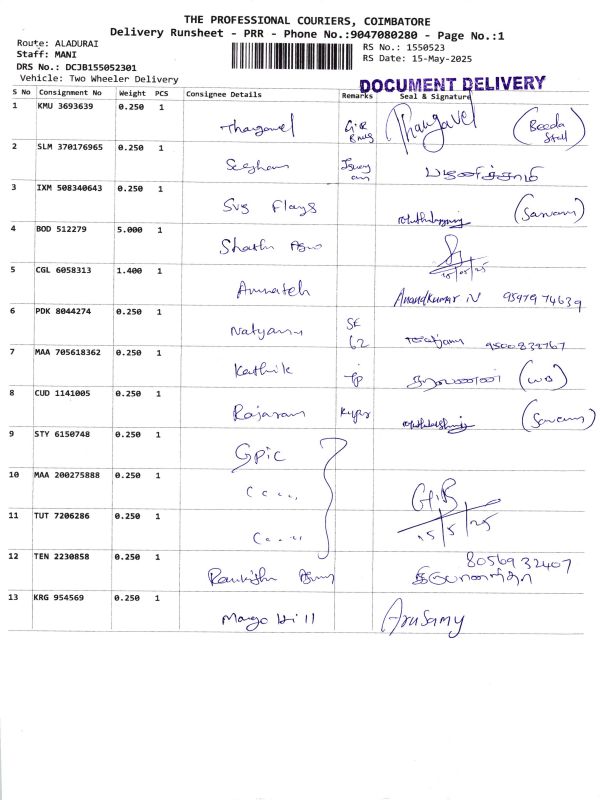 THE PROFESSIONAL COURIERS, COIMBATORE
Delivery Runsheet - PRR - Phone No.:9047080280 - Page No.:1
Route: ALADURAI
Staff: MANI
DRS No.: DCJB155052301
Vehicle: Two Wheeler Delivery
RS No.: 1550523
RS Date: 15-May-2025
DOCUMENT DELIVERY
S No Consignment No Weight PCS Consignee Details Remarks Seal & Signature
1 KMU 3693639 0.250 1 Thangavel Thangavel
2 SLM 370176965 0.250 1
3 IXM 508340643 0.250 1 Svs Flays
4 BOD 512279 5.000 1 15/05/25
5 CGL 6058313 1.400 1 Anandkumar N 9597974639
6 PDK 8044274 0.250 1 SE 62 9500832767
7 MAA 705618362 0.250 1 Kathik
8 CUD 1141005 0.250 1 Rajaram
9 STY 6150748 0.250 1 Gpic
10 MAA 200275888 0.250 1 GIB
11 TUT 7206286 0.250 1 15/5/25
12 TEN 2230858 0.250 1 8056932407
13 KRG 954569 0.250 1 Margo Hill Arusamy